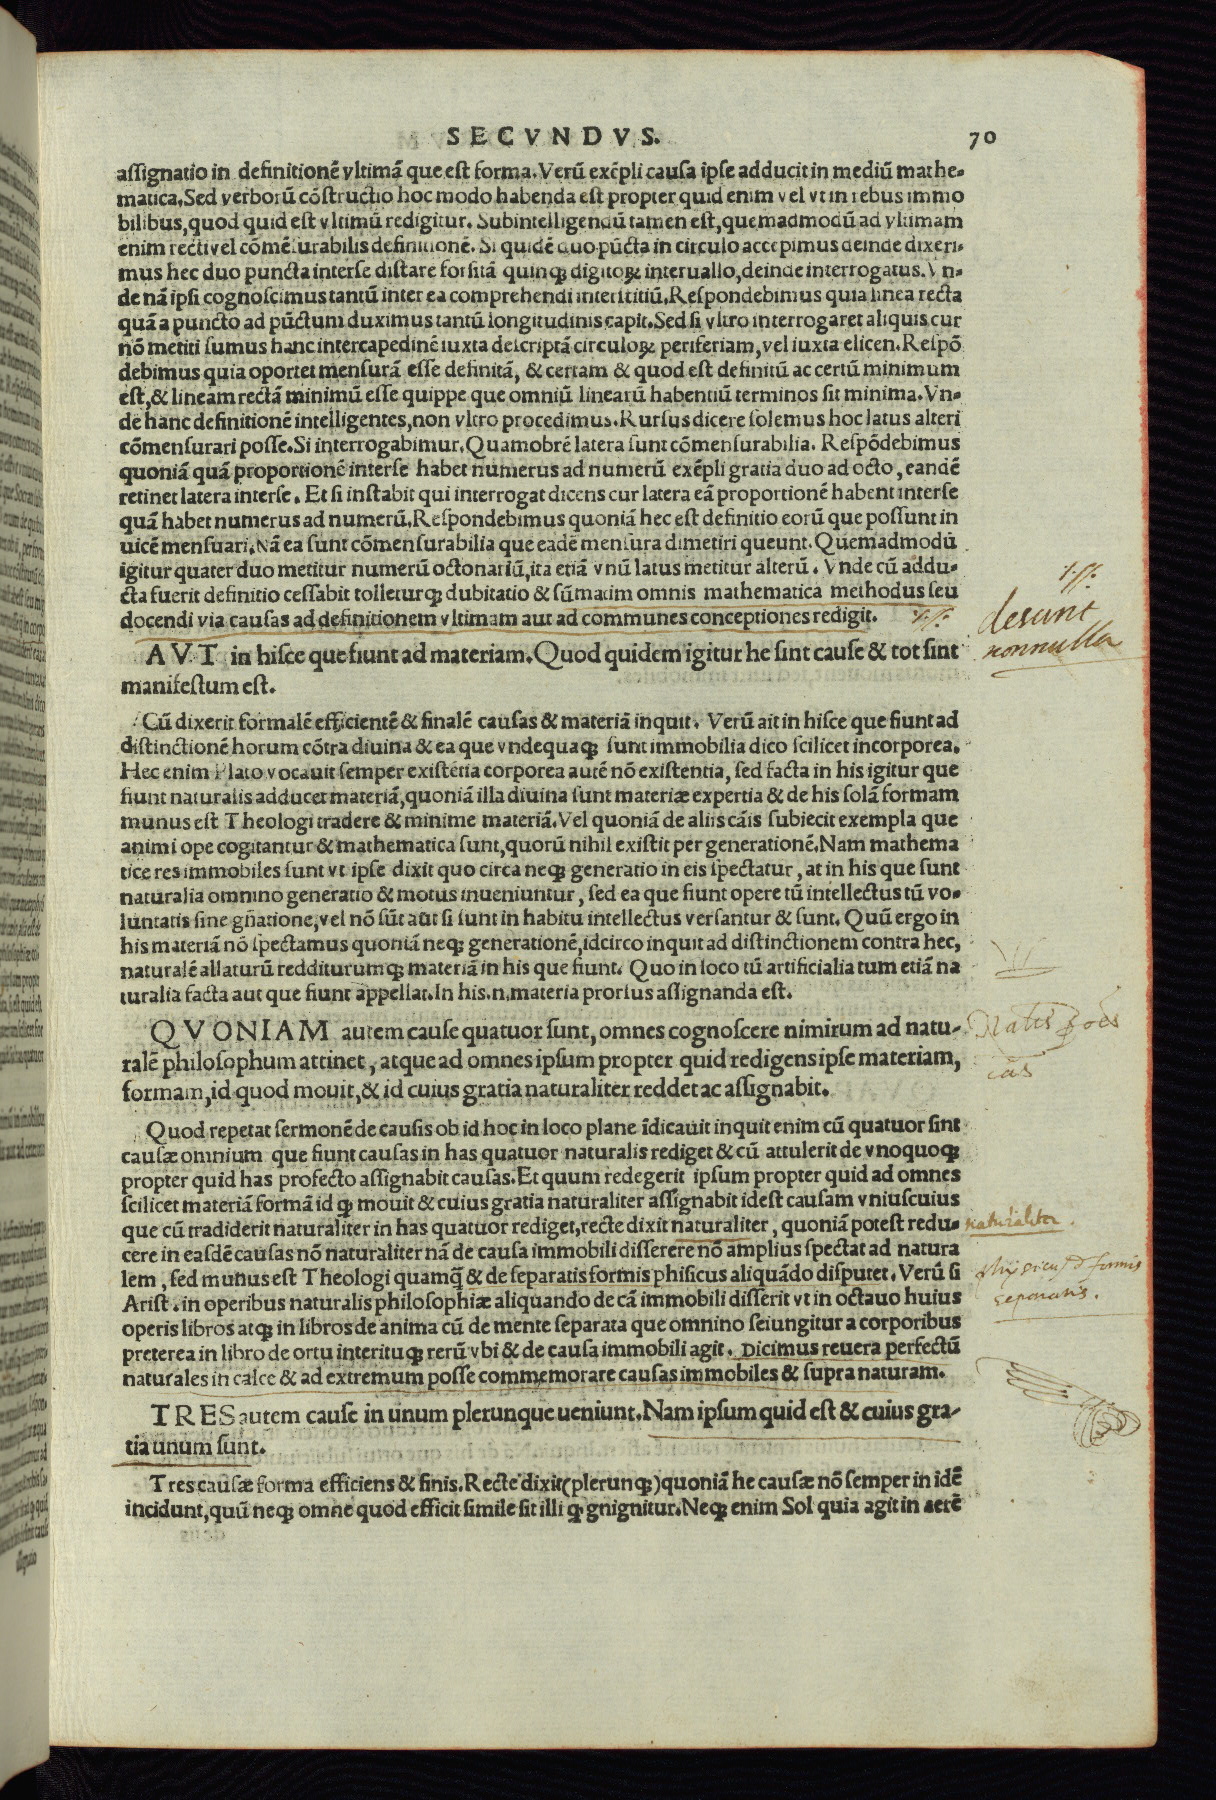 SECVNDVS. 70
assignatio in definitionē vltimā que est forma. Verū exēpli causa ipse adducit in mediū mathe-
matica. Sed verborū cōstructio hoc modo habenda est propter quid enim vel vt in rebus immo
bilibus, quod quid est vltimū redigitur. Subintelligendū tamen est, quemadmodū ad vltimam
enim recti vel cōmēsurabilis definitionē. Si quidē duo pūcta in circulo accepimus deinde dixeri-
mus hec duo puncta interse distare forsitā quinqꝫ digitoꝝ interuallo, deinde interrogatus. Vn-
de nā ipsi cognoscimus tantū inter ea comprehendi interstitiū. Respondebimus quia linea recta
quā a puncto ad pūctum duximus tantū longitudinis capit. Sed si vltro interrogaret aliquis cur
nō metiti sumus hanc intercapedinē iuxta descriptā circuloꝝ periferiam, vel iuxta elicen. Respō
debimus quia oportet mensurā esse definitā, & certam & quod est definitū ac certū minimum
est, & lineam rectā minimū esse quippe que omniū linearū habentiū terminos sit minima. Vn-
de hanc definitionē intelligentes, non vltro procedimus. Rursus dicere solemus hoc latus alteri
cōmensurari posse. Si interrogabimur. Quamobrē latera sunt cōmensurabilia. Respōdebimus
quoniā quā proportionē interse habet numerus ad numerū exēpli gratia duo ad octo, eandē
retinet latera interse. Et si instabit qui interrogat dicens cur latera eā proportionē habent interse
quā habet numerus ad numerū. Respondebimus quoniā hec est definitio eorū que possunt in
uicē mensuari. Nā ea sunt cōmensurabilia que eadē mensura dimetiri queunt. Quemadmodū
igitur quater duo metitur numerū octonariū, ita etiā vnū latus metitur alterū. Vnde cū addu-
cta fuerit definitio cessabit tolleturqꝫ dubitatio & sūmatim omnis mathematica methodus seu
docendi via causas ad definitionem vltimam aut ad communes conceptiones redigit.
desunt
nonnulla
AVT in hisce que fiunt ad materiam. Quod quidem igitur he sint cause & tot sint
manifestum est.
Cū dixerit formalē efficientē & finalē causas & materiā inquit. Verū ait in hisce que fiunt ad
distinctionē horum cōtra diuina & ea que vndequaqꝫ sunt immobilia dico scilicet incorporea.
Hec enim Plato vocauit semper existētia corporea autē nō existentia, sed facta in his igitur que
fiunt naturalis adducet materiā, quoniā illa diuina sunt materiæ expertia & de his solā formam
munus est Theologi tradere & minime materiā. Vel quoniā de aliis cāis subiecit exempla que
animi ope cogitantur & mathematica sunt, quorū nihil existit per generationē. Nam mathema
tice res immobiles sunt vt ipse dixit quo circa neqꝫ generatio in eis spectatur, at in his que sunt
naturalia omnino generatio & motus inueniuntur, sed ea que fiunt opere tū intellectus tū vo-
luntatis sine gñatione, vel nō sūt aut si sunt in habitu intellectus versantur & sunt. Quū ergo in
his materiā nō spectamus quoniā neqꝫ generationē, idcirco inquit ad distinctionem contra hec,
naturalē allaturū redditurumqꝫ materiā in his que fiunt. Quo in loco tū artificialia tum etiā na
turalia facta aut que fiunt appellat. In his .n. materia prorsus assignanda est.
QVONIAM autem cause quatuor sunt, omnes cognoscere nimirum ad natu-
ralē philosophum attinet, atque ad omnes ipsum propter quid redigens ipse materiam,
formam, id quod mouit, & id cuius gratia naturaliter reddet ac assignabit.
Quod repetat sermonē de causis ob id hoc in loco plane īdicauit inquit enim cū quatuor sint
causæ omnium que fiunt causas in has quatuor naturalis rediget & cū attulerit de vnoquoqꝫ
propter quid has profecto assignabit causas. Et quum redegerit ipsum propter quid ad omnes
scilicet materiā formā id qꝫ mouit & cuius gratia naturaliter assignabit idest causam vniuscuius
que cū tradiderit naturaliter in has quatuor rediget, recte dixit naturaliter, quoniā potest redu-
naturaliter.
cere in easdē causas nō naturaliter nā de causa immobili disserere nō amplius spectat ad natura
lem, sed munus est Theologi quamq̄ & de separatis formis phisicus aliquādo disputet. Verū si
physicus d formis
separatis.
Arist. in operibus naturalis philosophiæ aliquando de cā immobili disserit vt in octauo huius
operis libros atqꝫ in libros de anima cū de mente separata que omnino seiungitur a corporibus
preterea in libro de ortu interituqꝫ rerū vbi & de causa immobili agit. Dicimus reuera perfectū
naturales in calce & ad extremum posse commemorare causas immobiles & supra naturam.
TRES autem cause in unum plerunque ueniunt. Nam ipsum quid est & cuius gra-
tia unum sunt.
Tres causæ forma efficiens & finis. Recte dixit (plerunqꝫ) quoniā he causæ nō semper in idē
incidunt, quū neqꝫ omne quod efficit simile sit illi qꝫ gnignitur. Neqꝫ enim Sol quia agit in aerē